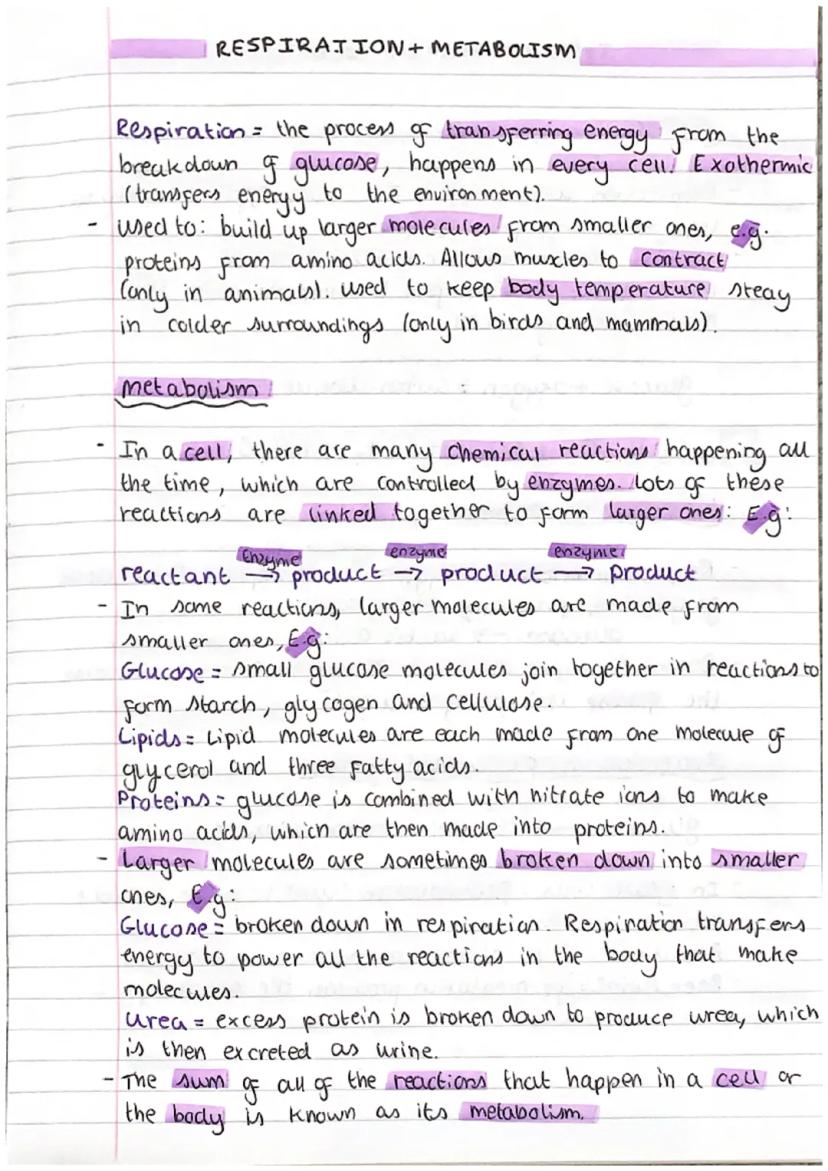 RESPIRATION + METABOLISM
Respiration = the process of transferring energy from the
breakdown of glucose, happens in every cell. Exothermic
(transfers energy to the environment).
- Used to: build up larger molecules from smaller ones, e.g.
proteins from amino acids. Allows muscles to contract
(only in animals). used to keep body temperature steay
in colder surroundings (only in birds and mammals).
Metabolism:
- In a cell, there are many chemical reactions happening all
the time, which are controlled by enzymes. Lots of these
reactions are linked together to form larger ones: E.g:
Enzyme enzyme enzyme
reactant → product → product → product
- In some reactions, larger molecules are made from
smaller ones, E.g:
Glucose = small glucose molecules join together in reactions to
form starch, glycogen and cellulose.
Lipids = Lipid molecules are each made from one molecule of
glycerol and three fatty acids.
Proteins = glucose is combined with nitrate ions to make
amino acids, which are then made into proteins.
- Larger molecules are sometimes broken down into smaller
ones, E.g:
Glucose = broken down in respiration. Respiration transfers
energy to power all the reactions in the body that make
molecules.
Urea = excess protein is broken down to produce urea, which
is then excreted as urine.
- The sum of all of the reactions that happen in a cell or
the body is known as its metabolism.